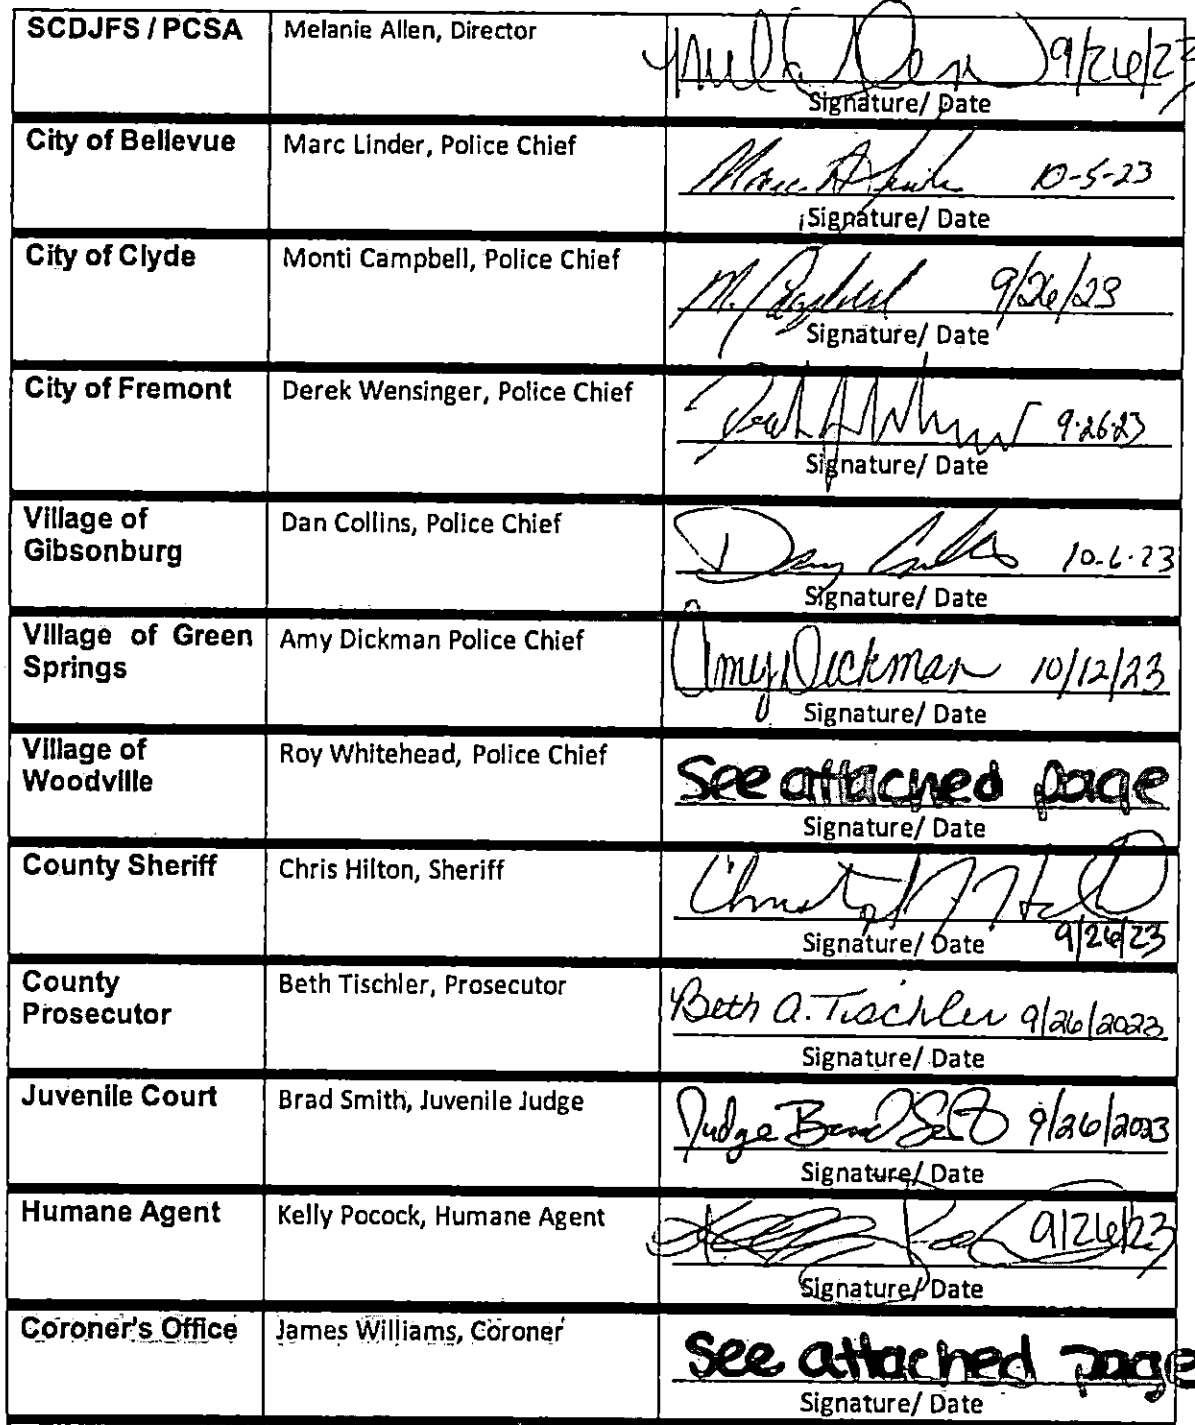 SCDJFS / PCSA Melanie Allen, Director 9/26/23
Signature/ Date
City of Bellevue Marc Linder, Police Chief 10-5-23
Signature/ Date
City of Clyde Monti Campbell, Police Chief M. Campbell 9/26/23
Signature/ Date
City of Fremont Derek Wensinger, Police Chief 9.26.23
Signature/ Date
Village of Gibsonburg Dan Collins, Police Chief 10.6.23
Signature/ Date
Village of Green Springs Amy Dickman Police Chief Amy Dickman 10/12/23
Signature/ Date
Village of Woodville Roy Whitehead, Police Chief See attached page
Signature/ Date
County Sheriff Chris Hilton, Sheriff
Signature/ Date 9/26/23
County Prosecutor Beth Tischler, Prosecutor Beth A. Tischler 9/26/2023
Signature/ Date
Juvenile Court Brad Smith, Juvenile Judge Judge Brad 9/26/2023
Signature/ Date
Humane Agent Kelly Pocock, Humane Agent 9/26/23
Signature/ Date
Coroner's Office James Williams, Coroner See attached page
Signature/ Date